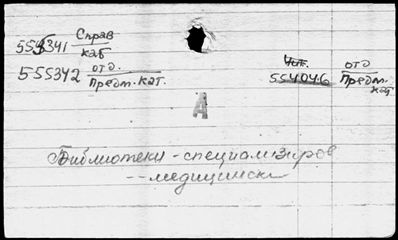 555341 Справ
каб
555342 отд.
Предм. кат.
Чит.
554046 отд
Предм.
кат
А
Библиотеки - специализиров
-- медицинск